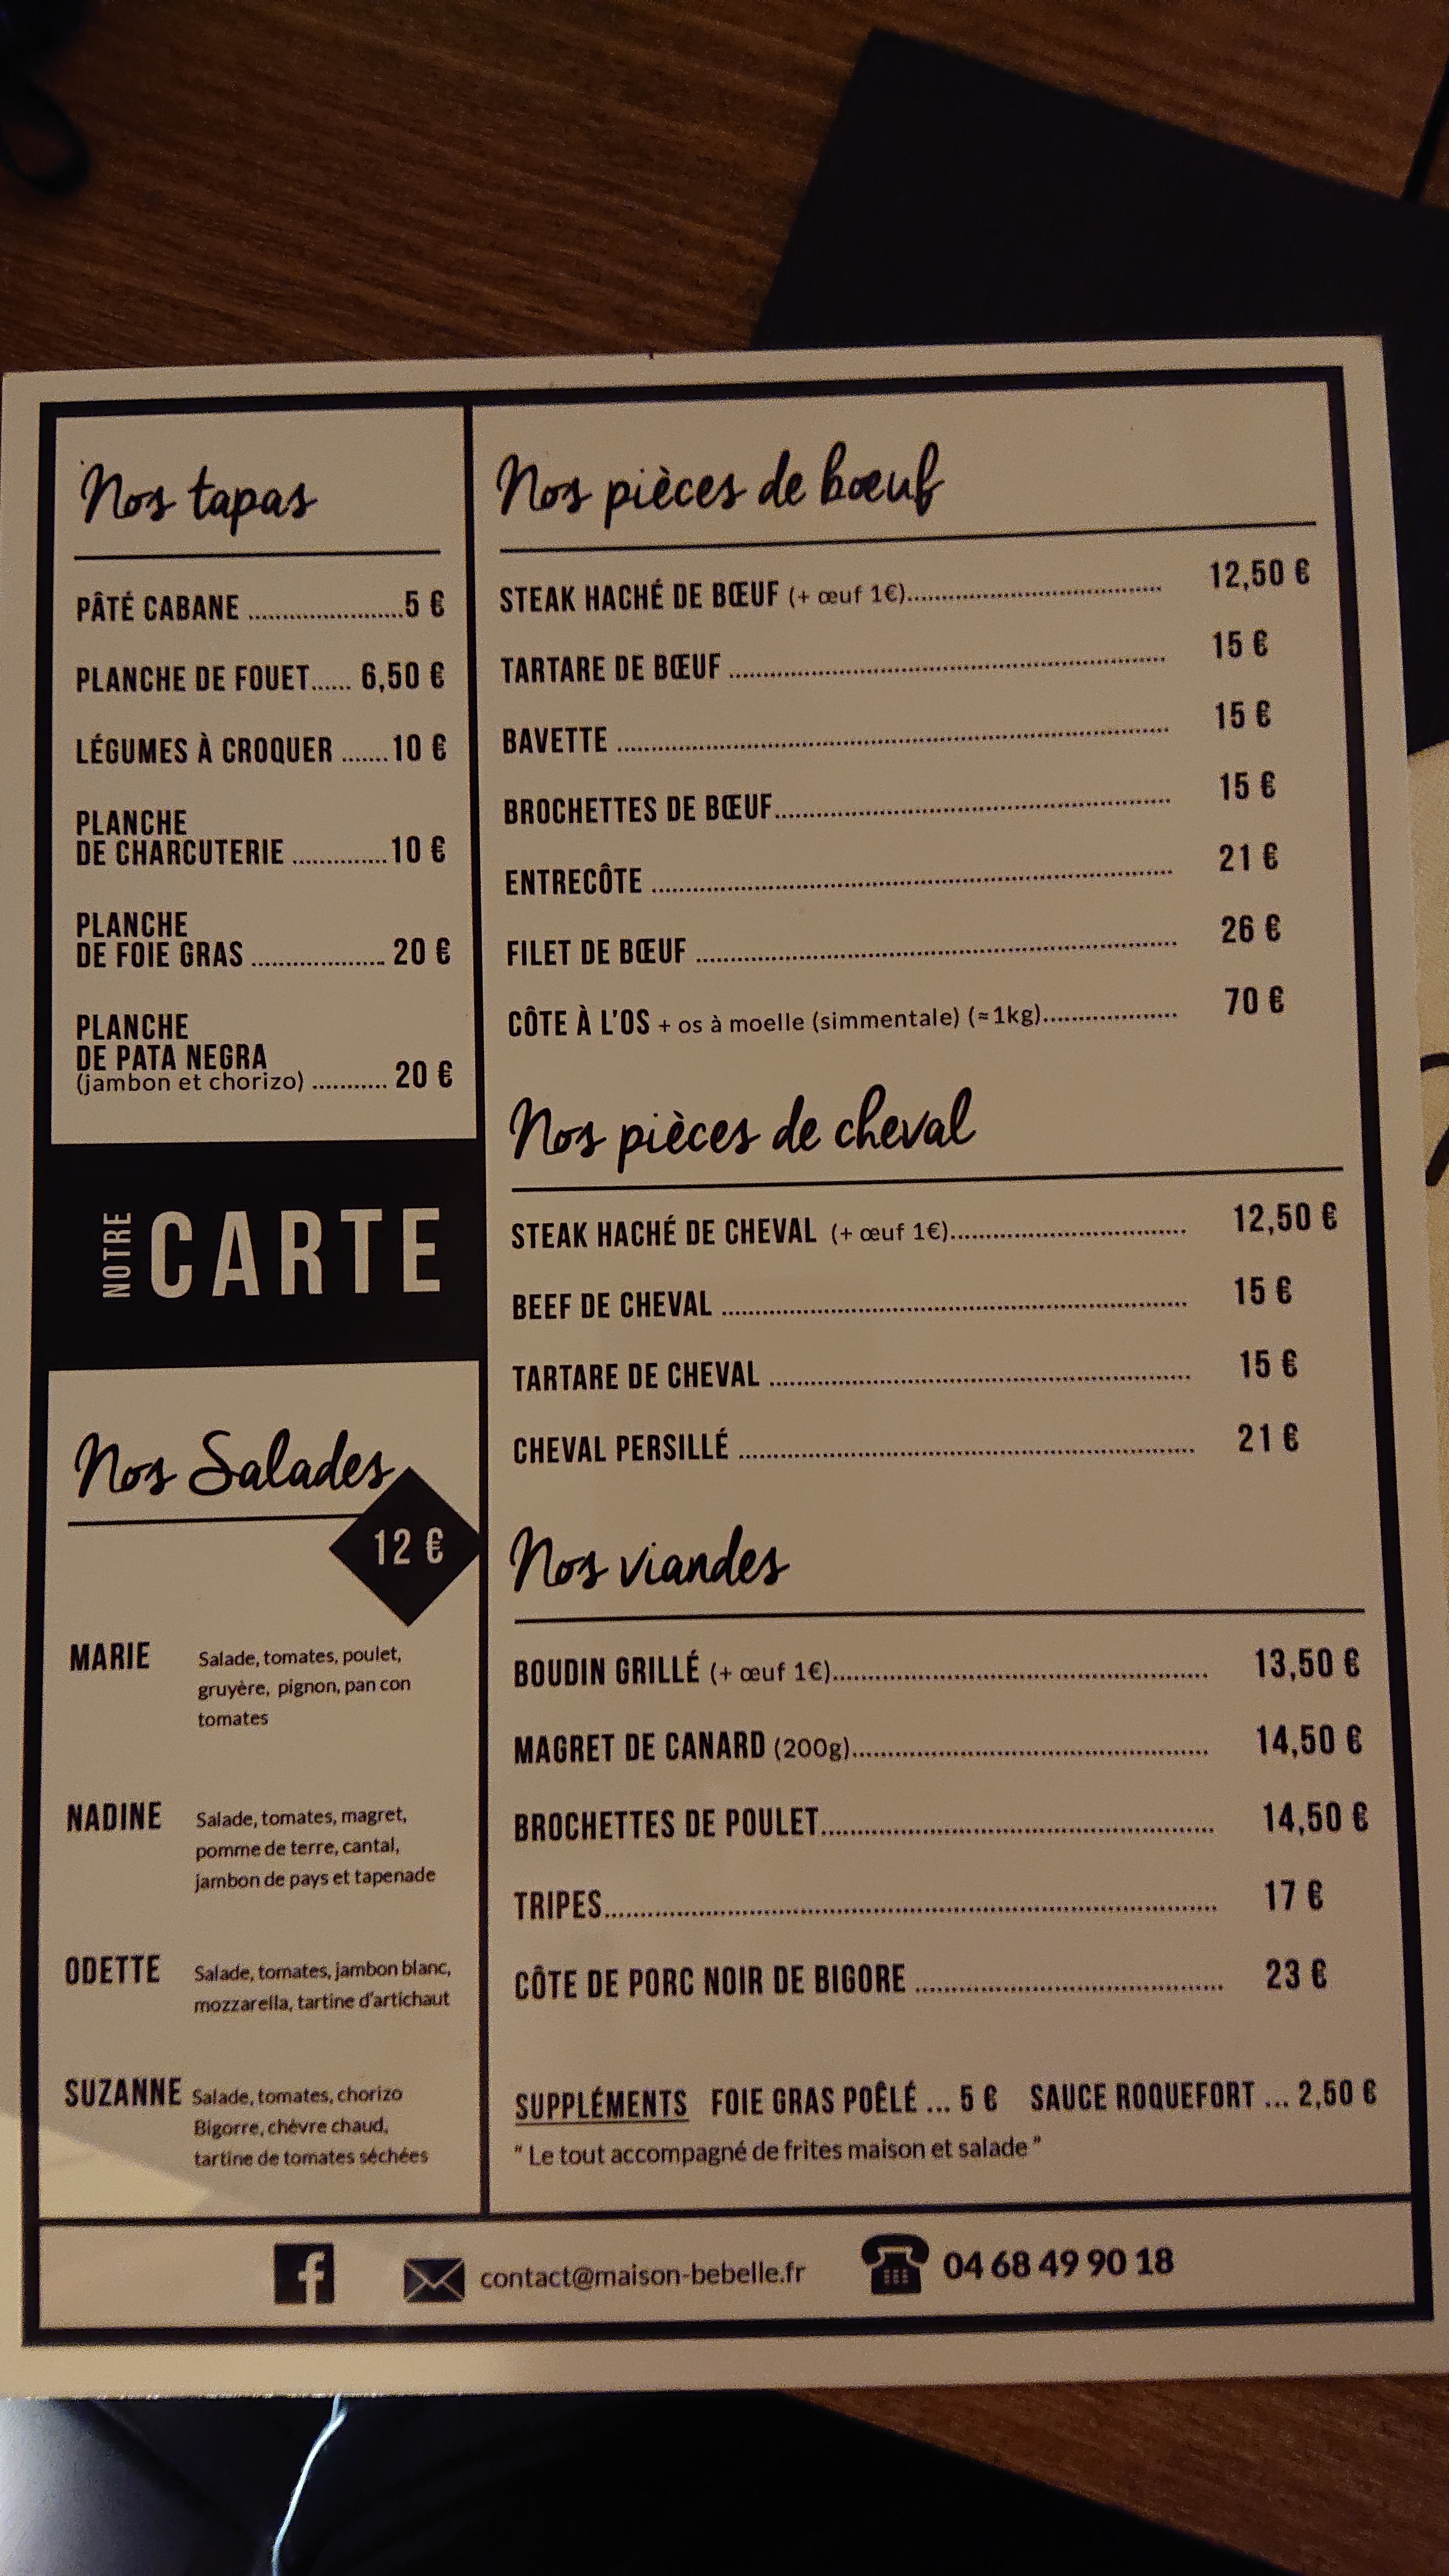 Nos tapas
PÂTÉ CABANE ....................... 5 €
PLANCHE DE FOUET...... 6,50 €
LÉGUMES À CROQUER ....... 10 €
PLANCHE
DE CHARCUTERIE .............. 10 €
PLANCHE
DE FOIE GRAS .................... 20 €
PLANCHE
DE PATA NEGRA
(jambon et chorizo) ........... 20 €
NOTRE CARTE
Nos Salades
12 €
MARIE Salade, tomates, poulet,
gruyère, pignon, pan con
tomates
NADINE Salade, tomates, magret,
pomme de terre, cantal,
jambon de pays et tapenade
ODETTE Salade, tomates, jambon blanc,
mozzarella, tartine d'artichaut
SUZANNE Salade, tomates, chorizo
Bigorre, chèvre chaud,
tartine de tomates séchées
Nos pièces de bœuf
STEAK HACHÉ DE BŒUF (+ œuf 1€)........ 12,50 €
TARTARE DE BŒUF ........ 15 €
BAVETTE ........ 15 €
BROCHETTES DE BŒUF........ 15 €
ENTRECÔTE ........ 21 €
FILET DE BŒUF ........ 26 €
CÔTE À L'OS + os à moelle (simmentale) (≈1kg)........ 70 €
Nos pièces de cheval
STEAK HACHÉ DE CHEVAL (+ œuf 1€)........ 12,50 €
BEEF DE CHEVAL ........ 15 €
TARTARE DE CHEVAL ........ 15 €
CHEVAL PERSILLÉ ........ 21 €
Nos viandes
BOUDIN GRILLÉ (+ œuf 1€)........ 13,50 €
MAGRET DE CANARD (200g)........ 14,50 €
BROCHETTES DE POULET........ 14,50 €
TRIPES........ 17 €
CÔTE DE PORC NOIR DE BIGORE ........ 23 €
SUPPLÉMENTS FOIE GRAS POÊLÉ ... 5 € SAUCE ROQUEFORT ... 2,50 €
" Le tout accompagné de frites maison et salade "
f contact@maison-bebelle.fr 04 68 49 90 18